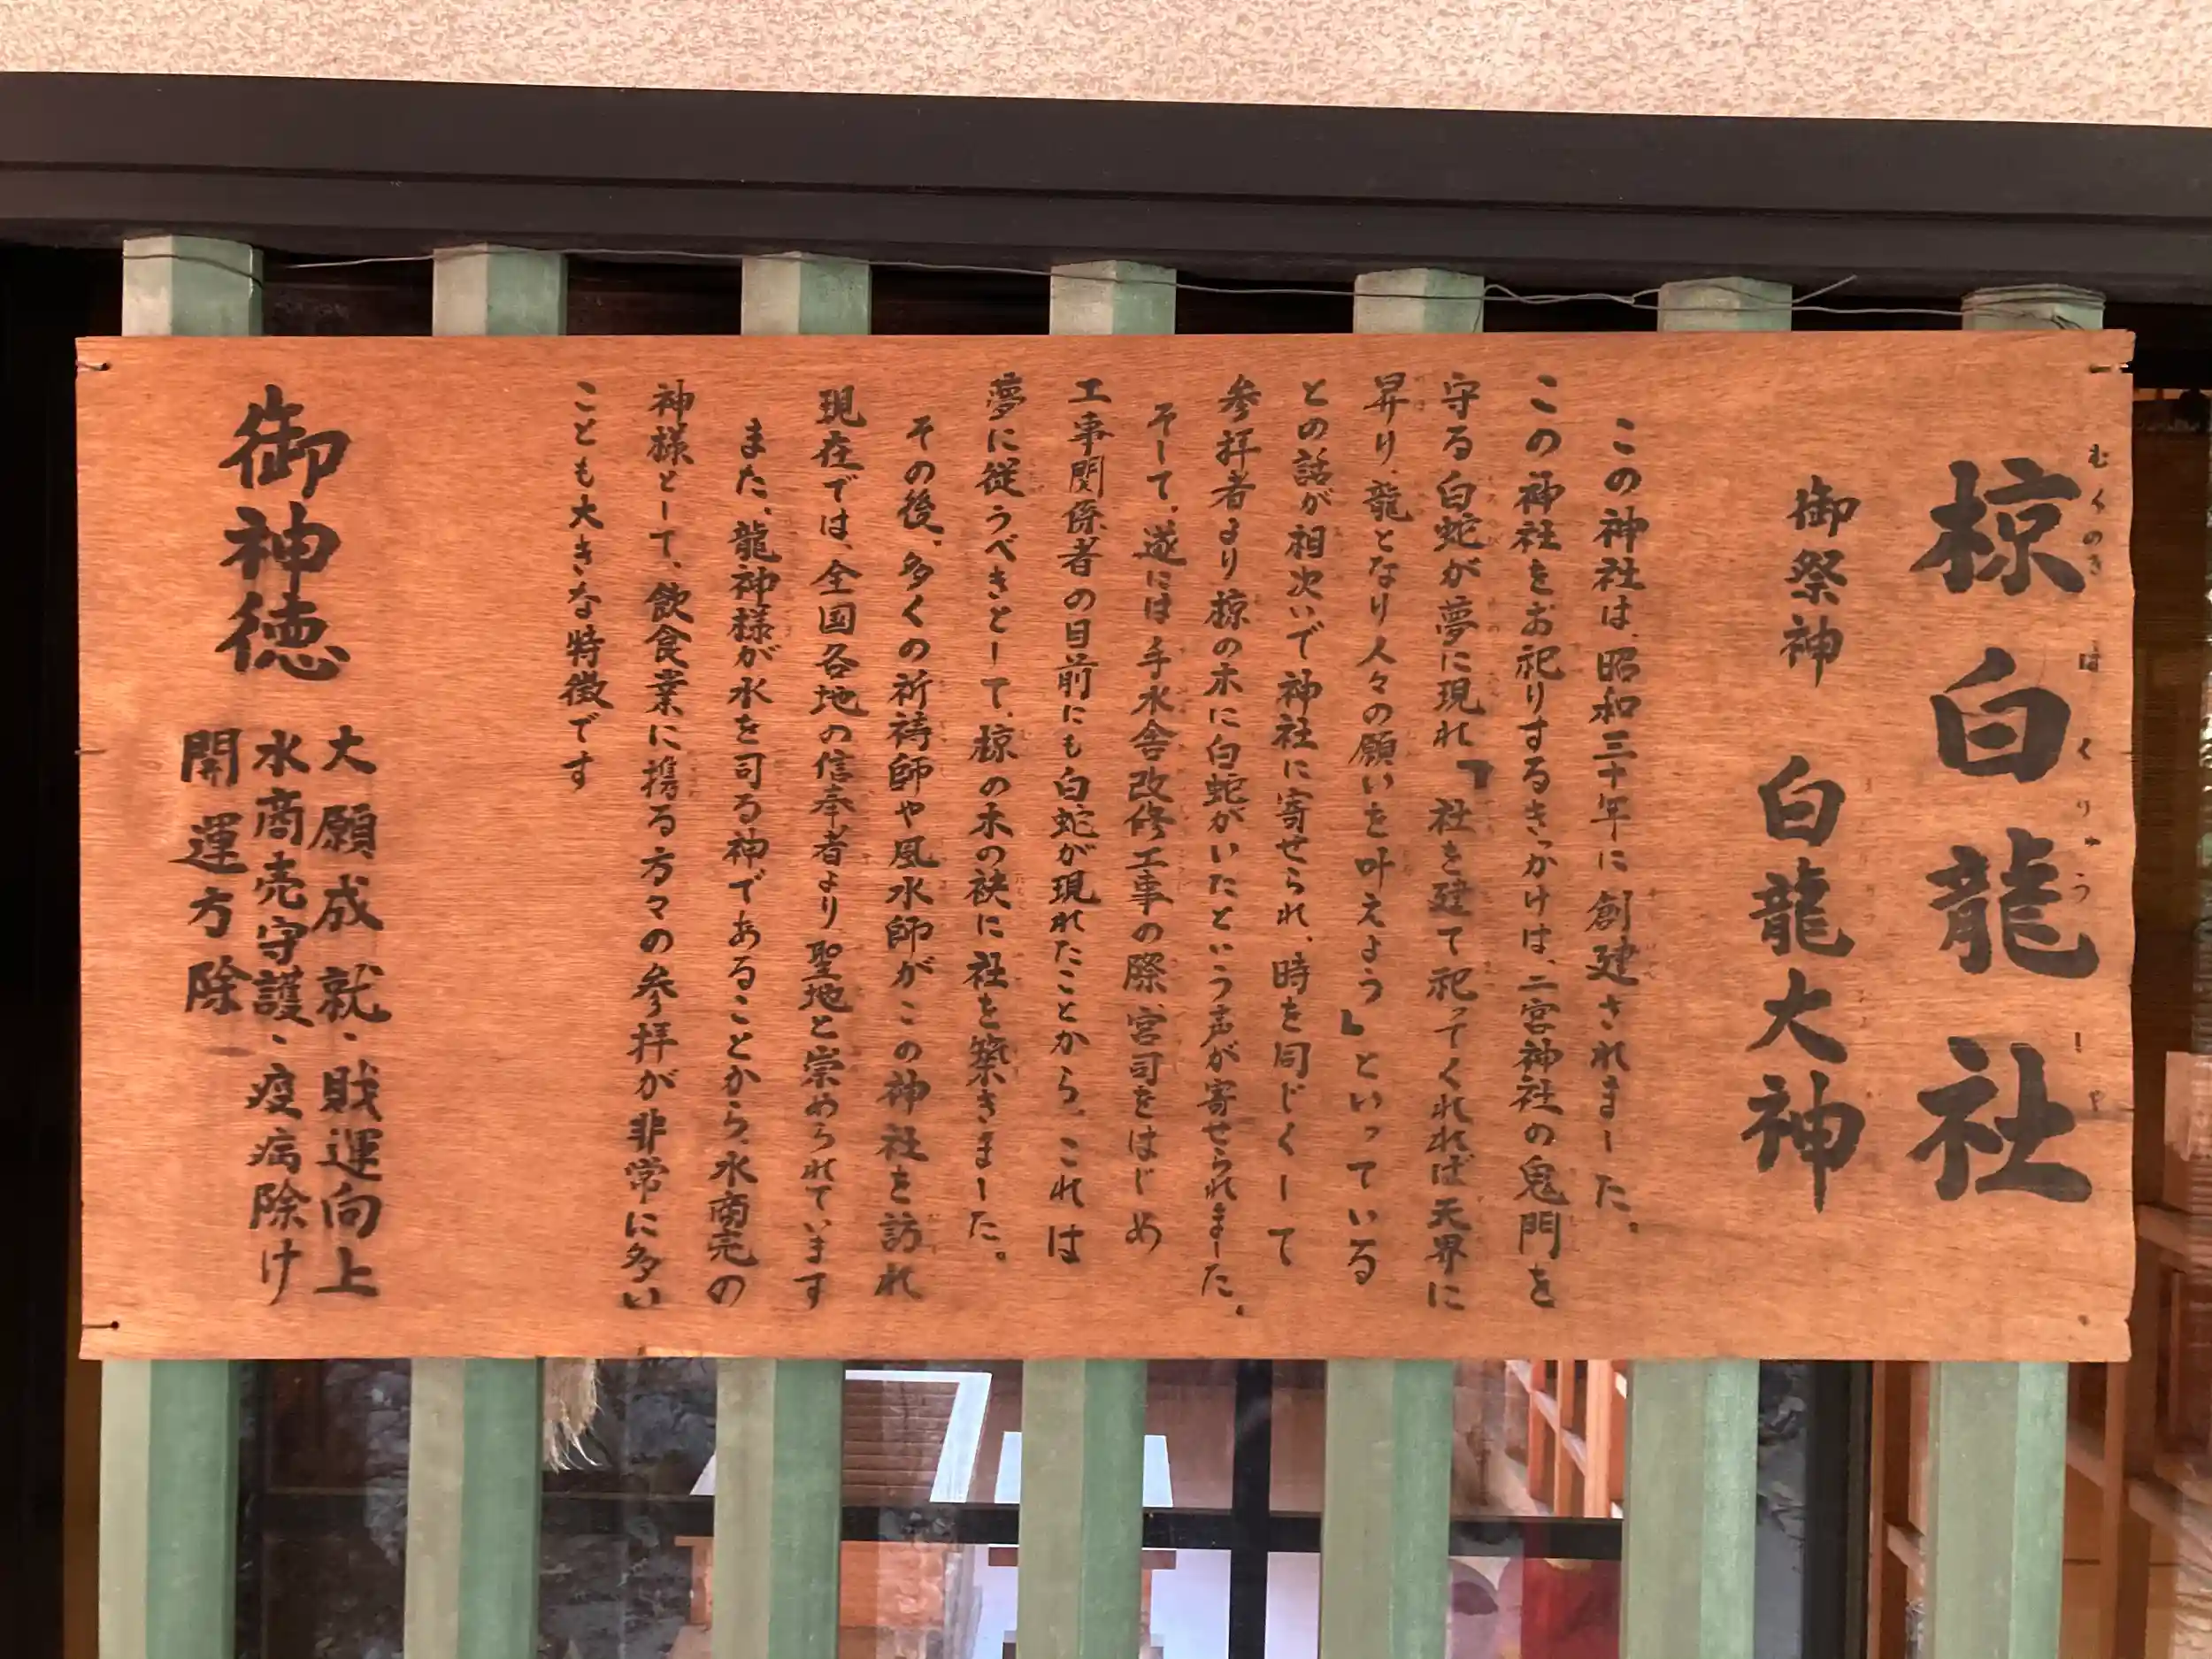 椋白龍社
むくのきはくりゅうしゃ
御祭神 白龍大神
この神社は、昭和三十年に創建されました。
この神社をお祀りするきっかけは、二宮神社の鬼門を
守る白蛇が夢に現れ「社を建て祀ってくれれば天界に
昇り、龍となり人々の願いを叶えよう」といっている
との話が相次いで神社に寄せられ、時を同じくして
参拝者より椋の木に白蛇がいたという声が寄せられました。
そして、遂には手水舎改修工事の際、宮司をはじめ
工事関係者の目前にも白蛇が現れたことから、これは
夢に従うべきとして、椋の木の袂に社を築きました。
その後、多くの祈祷師や風水師がこの神社を訪れ
現在では、全国各地の信奉者より聖地と崇められています
また、龍神様が水を司る神であることから、水商売の
神様として、飲食業に携る方々の参拝が非常に多い
ことも大きな特徴です
御神徳
大願成就・財運向上
水商売守護・疫病除け
開運方除